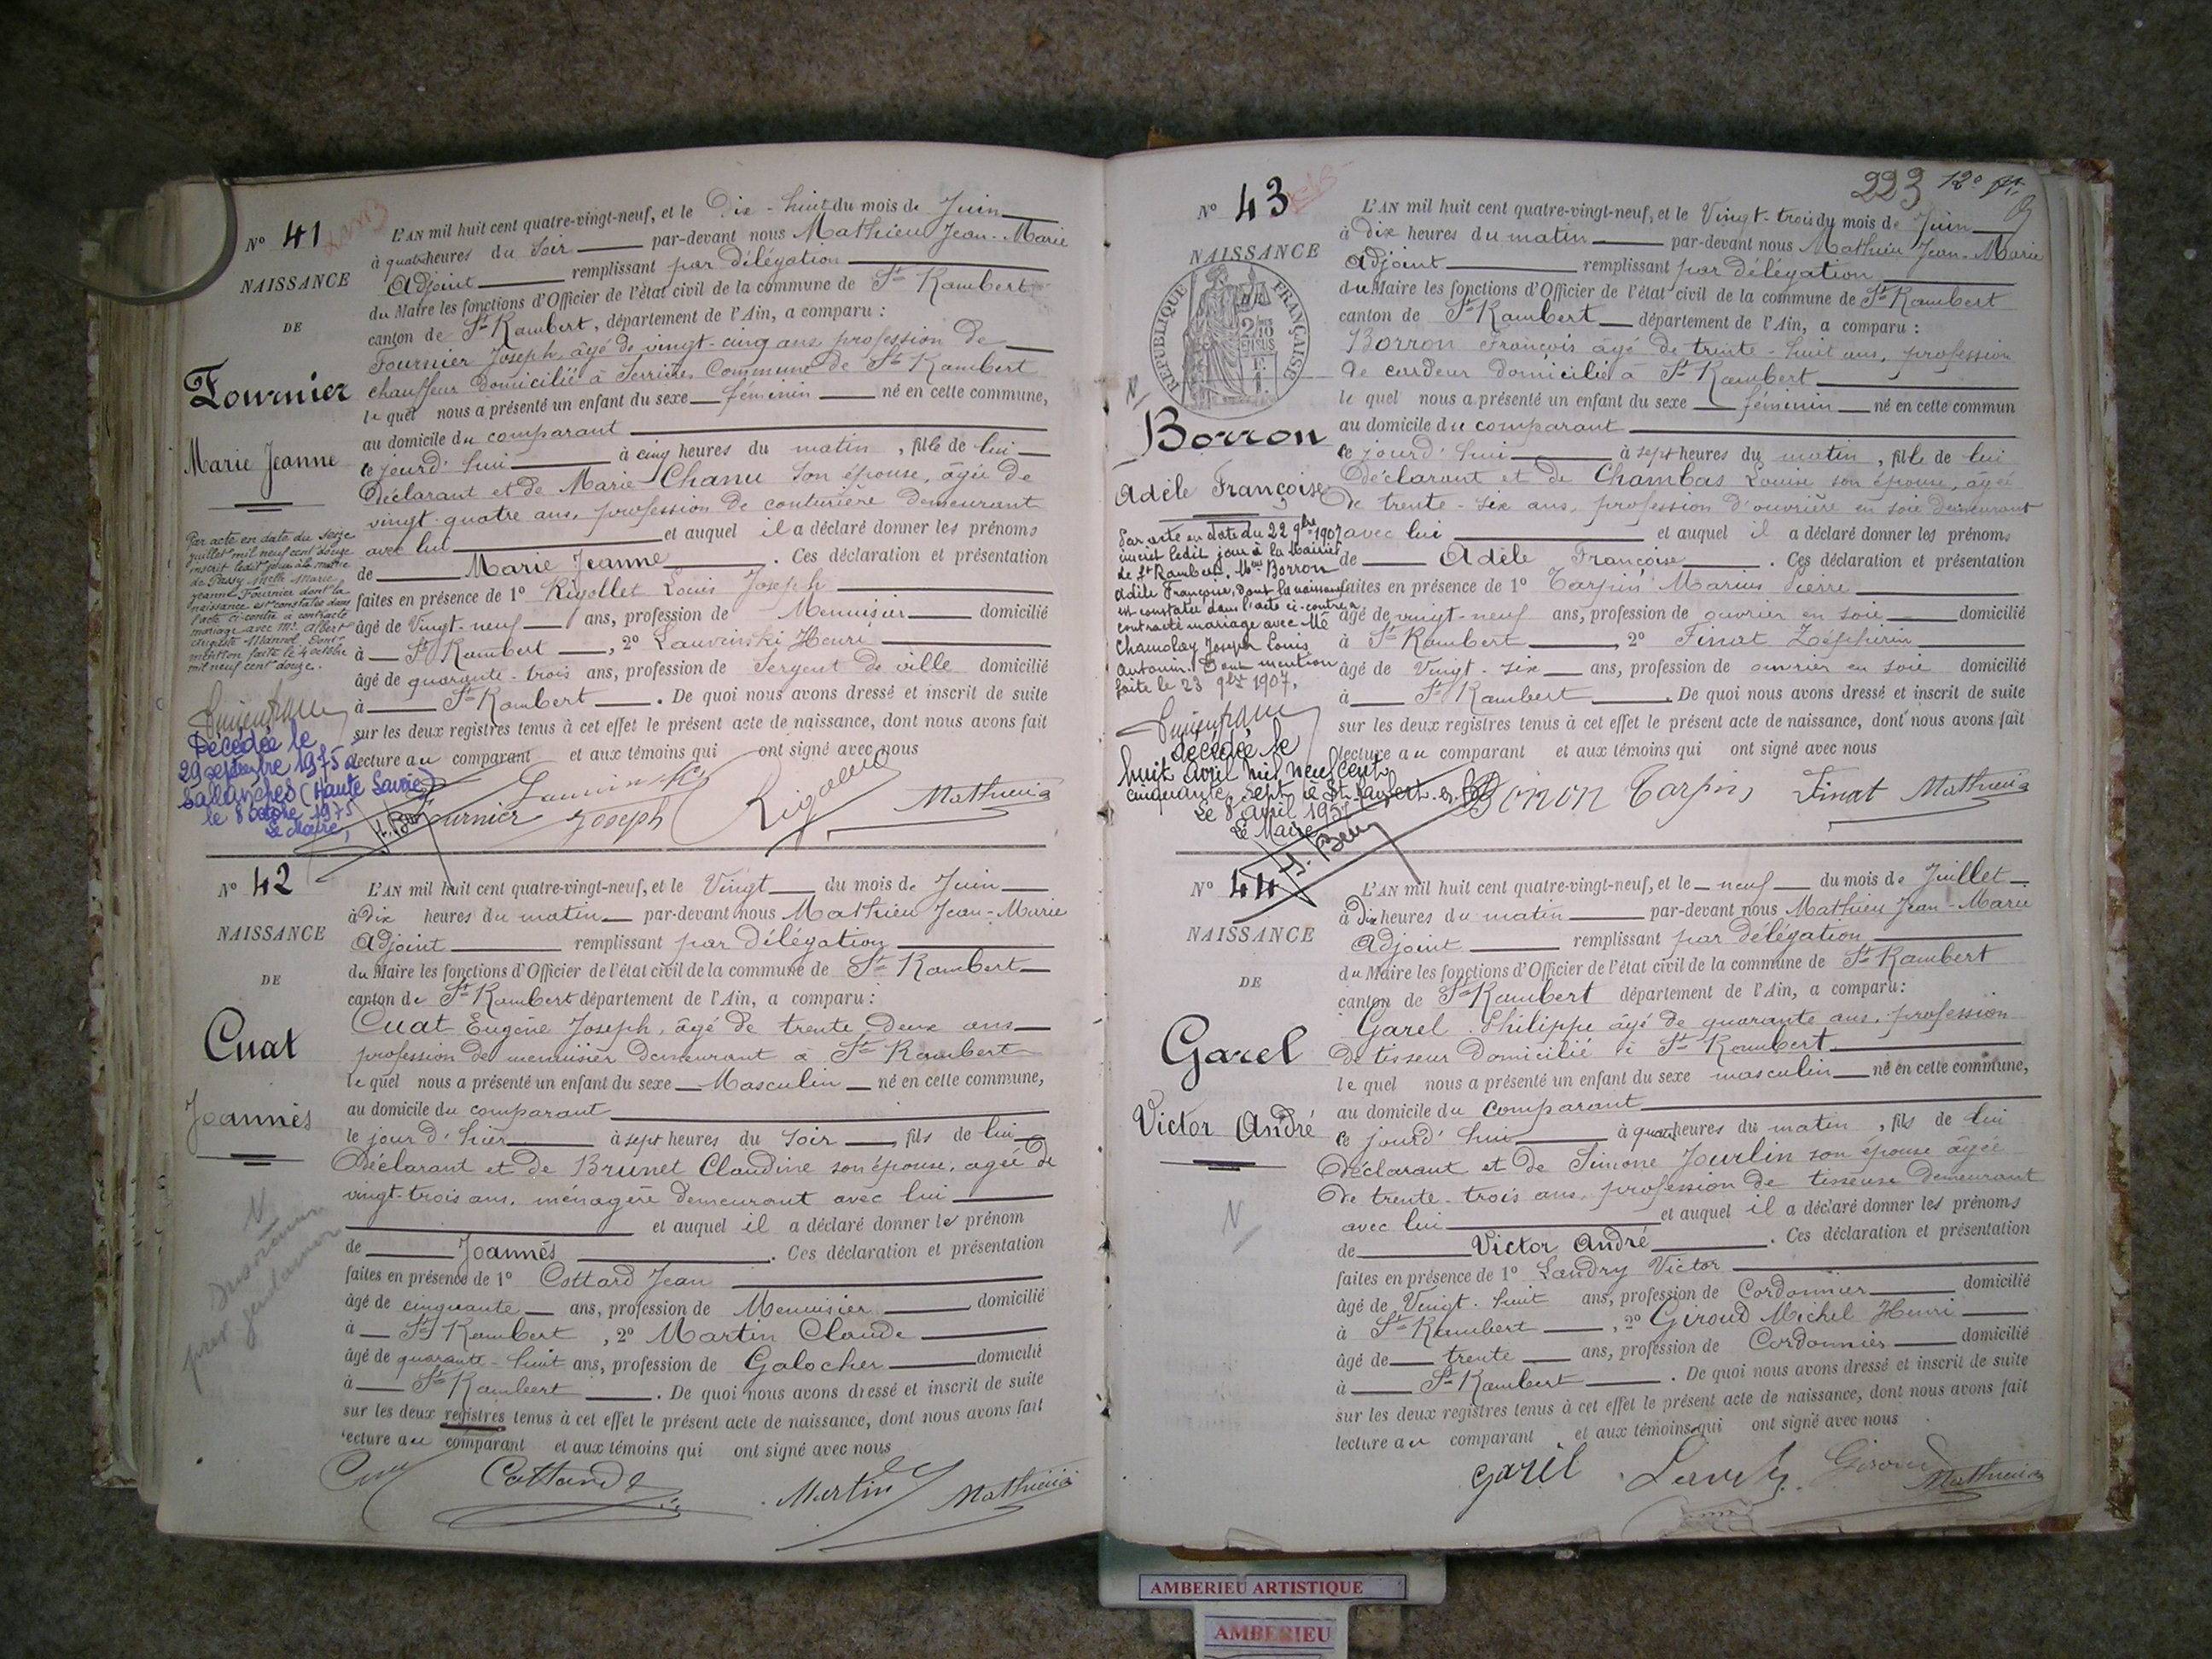 N° 41
NAISSANCE
DE
Fournier
Marie Jeanne
Par acte en date du seize
juillet mil neuf cent douze
inscrit ledit jour à la mairie
de Passy Melle Marie
Jeanne Fournier dont la
naissance est constatée dans
l'acte ci-contre a contracté
mariage avec Mr. Albert
Auguste Mannol. Dont
mention faite le 4 octobre
mil neuf cent douze.
Décédée le
29 septembre 1975 à
Sallanches (Haute Savoie)
le 8 octobre 1975
Le Maire,
L'AN mil huit cent quatre-vingt-neuf, et le Dix-huit du mois de Juin
à quatre heures du soir par-devant nous Mathieu Jean-Marie
Adjoint remplissant par délégation
du Maire les fonctions d'Officier de l'état civil de la commune de St Rambert
canton de St Rambert, département de l'Ain, a comparu :
Fournier Joseph, âgé de vingt-cinq ans profession de
chauffeur domicilié à Serrières Commune de St Rambert
le quel nous a présenté un enfant du sexe féminin né en cette commune,
au domicile du comparant
ce jourd'hui à cinq heures du matin, fille de lui
Déclarant et de Marie Chanu son épouse, âgée de
vingt-quatre ans, profession de couturière demeurant
avec lui et auquel il a déclaré donner les prénoms
de Marie Jeanne. Ces déclaration et présentation
faites en présence de 1° Rigollet Louis Joseph
âgé de Vingt-neuf ans, profession de Menuisier domicilié
à St Rambert, 2° Henri
âgé de quarante-trois ans, profession de Sergent de ville domicilié
à St Rambert. De quoi nous avons dressé et inscrit de suite
sur les deux registres tenus à cet effet le présent acte de naissance, dont nous avons fait
lecture au comparant et aux témoins qui ont signé avec nous
Fournier Joseph Mathieu
N° 42
NAISSANCE
DE
Cuat
Joannès
N
L'AN mil huit cent quatre-vingt-neuf, et le Vingt du mois de Juin
à dix heures du matin par-devant nous Mathieu Jean-Marie
Adjoint remplissant par délégation
du Maire les fonctions d'Officier de l'état civil de la commune de St Rambert
canton de St Rambert département de l'Ain, a comparu :
Cuat Eugène Joseph, âgé de trente-deux ans
profession de menuisier demeurant à St Rambert
le quel nous a présenté un enfant du sexe Masculin né en cette commune,
au domicile du comparant
le jour d'hier à sept heures du soir, fils de lui
Déclarant et de Brunet Claudine son épouse, agée de
vingt-trois ans, ménagère demeurant avec lui
et auquel il a déclaré donner le prénom
de Joannès. Ces déclaration et présentation
faites en présence de 1° Cottard Jean
âgé de cinquante ans, profession de Menuisier domicilié
à St Rambert, 2° Martin Claude
âgé de quarante-huit ans, profession de Galocher domicilié
à St Rambert. De quoi nous avons dressé et inscrit de suite
sur les deux registres tenus à cet effet le présent acte de naissance, dont nous avons fait
lecture au comparant et aux témoins qui ont signé avec nous
Martin Mathieu
223
N° 43
NAISSANCE
RÉPUBLIQUE FRANÇAISE
Borron
Adèle Françoise
Par acte en date du 22 9bre 1907
inscrit ledit jour à la Mairie
de St Rambert, Melle Borron
Adèle Françoise, dont la naissance
est constatée dans l'acte ci-contre a
contracté mariage avec Mr
Chamolay Joseph Louis
Antonin. Dont mention
faite le 23 9bre 1907.
décédée le
huit avril mil neuf cent
cinquante sept à St Rambert
Le 8 avril 1957
Le Maire
L'AN mil huit cent quatre-vingt-neuf, et le Vingt-trois du mois de Juin
à dix heures du matin par-devant nous Mathieu Jean-Marie
Adjoint remplissant par délégation
du Maire les fonctions d'Officier de l'état civil de la commune de St Rambert
canton de St Rambert département de l'Ain, a comparu :
Borron François âgé de trente-huit ans, profession
de cardeur domicilié à St Rambert
le quel nous a présenté un enfant du sexe féminin né en cette commun
au domicile du comparant
ce jourd'hui à sept heures du matin, fille de lui
Déclarant et de Chambas Louise son épouse, âgée
de trente-six ans, profession d'ouvrière en soie demeurant
avec lui et auquel il a déclaré donner les prénoms
de Adèle Françoise. Ces déclaration et présentation
faites en présence de 1° Tarpin Marius Pierre
âgé de vingt-neuf ans, profession de ouvrier en soie domicilié
à St Rambert, 2° Finat Zéphirin
âgé de Vingt-six ans, profession de ouvrier en soie domicilié
à St Rambert. De quoi nous avons dressé et inscrit de suite
sur les deux registres tenus à cet effet le présent acte de naissance, dont nous avons fait
lecture au comparant et aux témoins qui ont signé avec nous
Tarpin Finat Mathieu
N° 44
NAISSANCE
DE
Garel
Victor André
N
L'AN mil huit cent quatre-vingt-neuf, et le neuf du mois de Juillet
à dix heures du matin par-devant nous Mathieu Jean-Marie
Adjoint remplissant par délégation
du Maire les fonctions d'Officier de l'état civil de la commune de St Rambert
canton de St Rambert département de l'Ain, a comparu :
Garel Philippe âgé de quarante ans, profession
de tisseur domicilié à St Rambert
le quel nous a présenté un enfant du sexe masculin né en cette commune,
au domicile du comparant
ce jourd'hui à quatre heures du matin, fils de lui
Déclarant et de Simone Jourlin son épouse âgée
de trente-trois ans, profession de tisseuse demeurant
avec lui et auquel il a déclaré donner les prénoms
de Victor André. Ces déclaration et présentation
faites en présence de 1° Landry Victor
âgé de Vingt-huit ans, profession de Cordonnier domicilié
à St Rambert, 2° Giroud Michel Henri
âgé de trente ans, profession de Cordonnier domicilié
à St Rambert. De quoi nous avons dressé et inscrit de suite
sur les deux registres tenus à cet effet le présent acte de naissance, dont nous avons fait
lecture au comparant et aux témoins qui ont signé avec nous
Garel Giroud Mathieu
AMBERIEU ARTISTIQUE
AMBERIEU